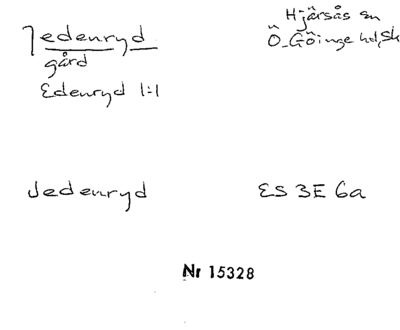 Jedenryd
gård
Edenryd 1:1
Hjärsås sn
Ö. Göinge hd, Sk
Jedenryd
ES 3E 6a
Nr 15328